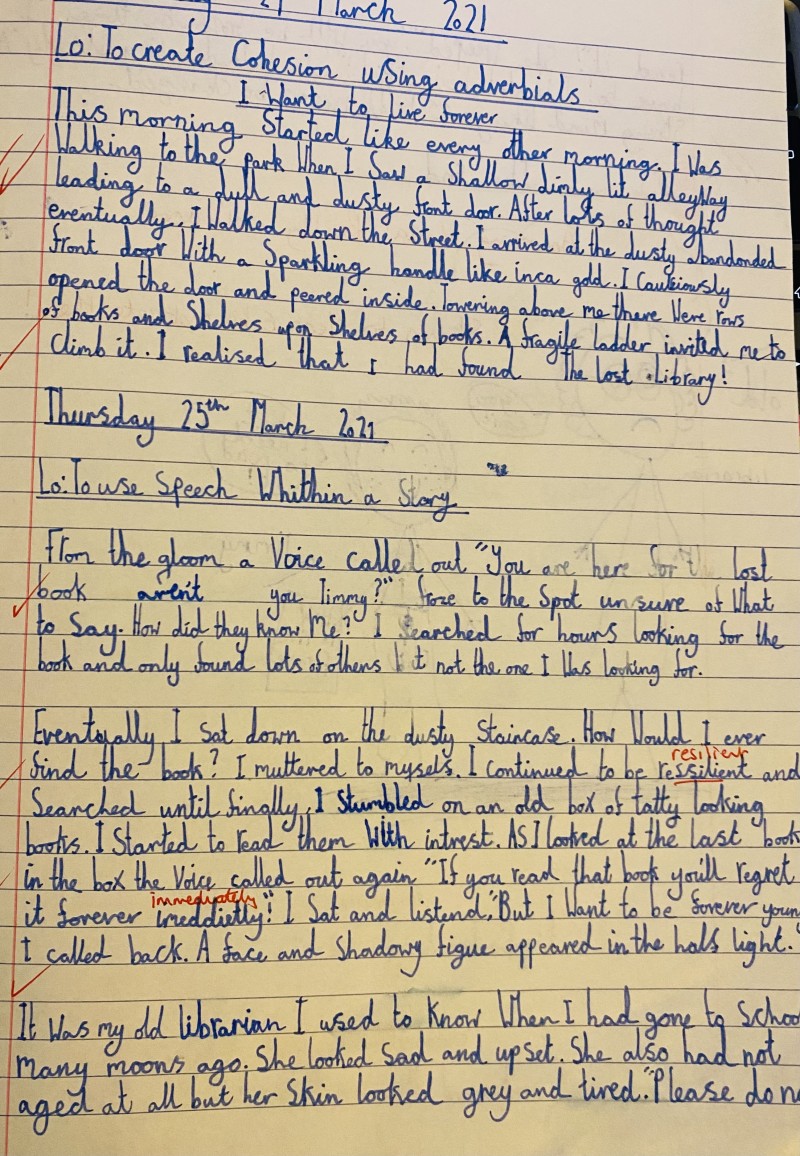 March 2021
Lo: To create Cohesion using adverbials
I Want to live forever
This morning Started like every other morning. I Was
Walking to the park When I Saw a Shallow dimly lit alleyWay
leading to a dull and dusty front door. After lots of thought
eventually, I Walked down the Street. I arrived at the dusty abandonded
front door With a Sparkling handle like inca gold. I Cauteiously
opened the door and peered inside. Towering above me there Were rows
of books and Shelves upon Shelves of books. A fragile ladder invited me to
Climb it. I realised that I had found The Lost Library!
Thursday 25th March 2021
Lo: To use Speech Whithin a Story
From the gloom a Voice called out "You are here for lost
book aren't you Timmy?" froze to the Spot unsure of What
to Say. How did they know Me? I Searched for hours looking for the
book and only found lots of others not the one I Was looking for.
Eventually I Sat down on the dusty Staircase. How Would I ever
resilient
find the book? I muttered to myself. I continued to be ressilient and
Searched until finally, I Stumbled on an old box of tatty looking
books. I Started to read them With intrest. AS I looked at the last book
in the box the Voice called out again "If you read that book you'll regret
immediately
it forever imeddietly"! I Sat and listend, "But I Want to be forever youn
I called back. A face and Shadowy figue appeared in the half light.
It Was my old librarian I used to know When I had gone to Schoo
many moons ago. She looked Sad and upset. She also had not
aged at all but her Skin looked grey and tired. "Please do n